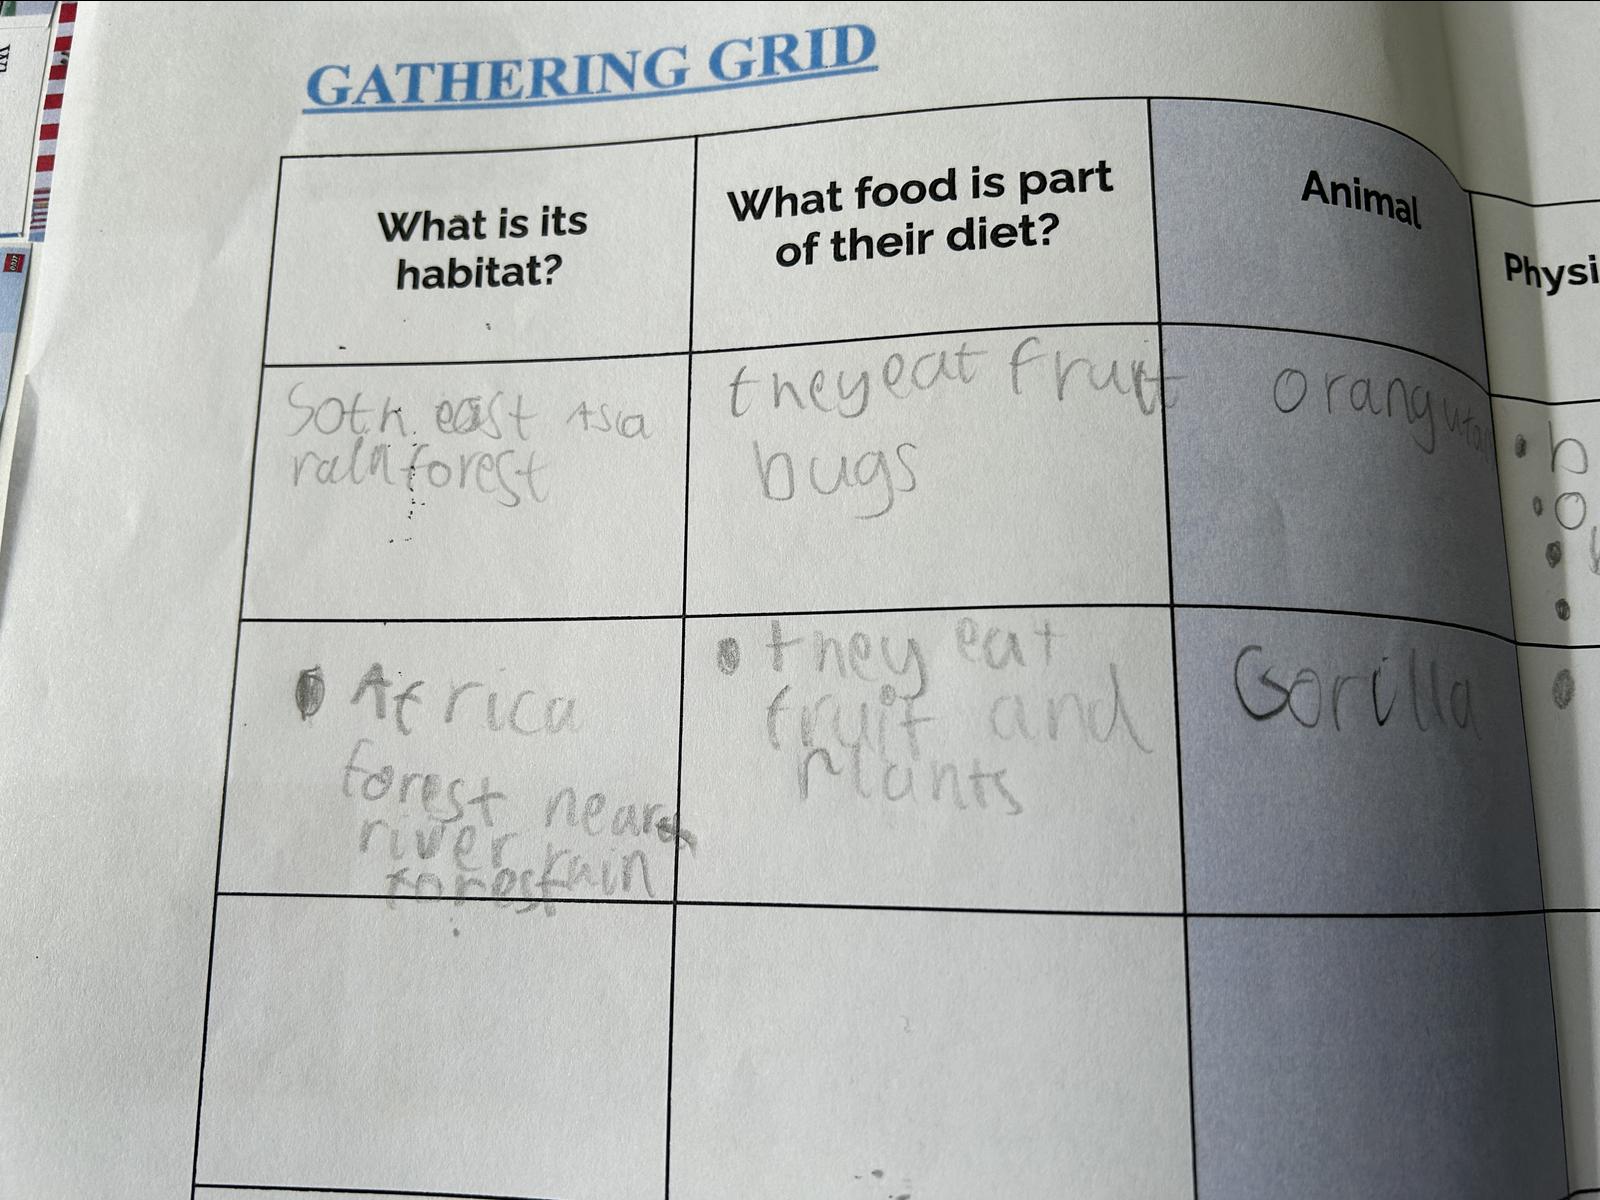 GATHERING GRID
What is its
habitat?
What food is part
of their diet?
Animal
Physi
Soth east Asia
rainforest
they eat fruit
bugs
Orangutan
Africa
forest near
river rain
forest
they eat
fruit and
plants
Gorilla